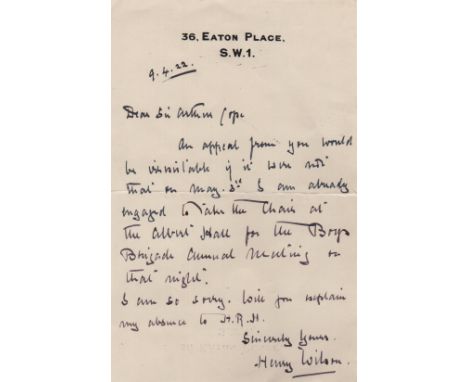 36, EATON PLACE.
S.W.1.
9.4.22.
Dear Sir Arthur Cope
An appeal from you would
be irresistible if it were not
that on May. 3rd I am already
engaged to take the Chair at
the Albert Hall for the Boys
Brigade Annual Meeting on
that night.
I am so sorry. Will you explain
my absence to H.R.H.
Sincerely Yours.
Henry Wilson.